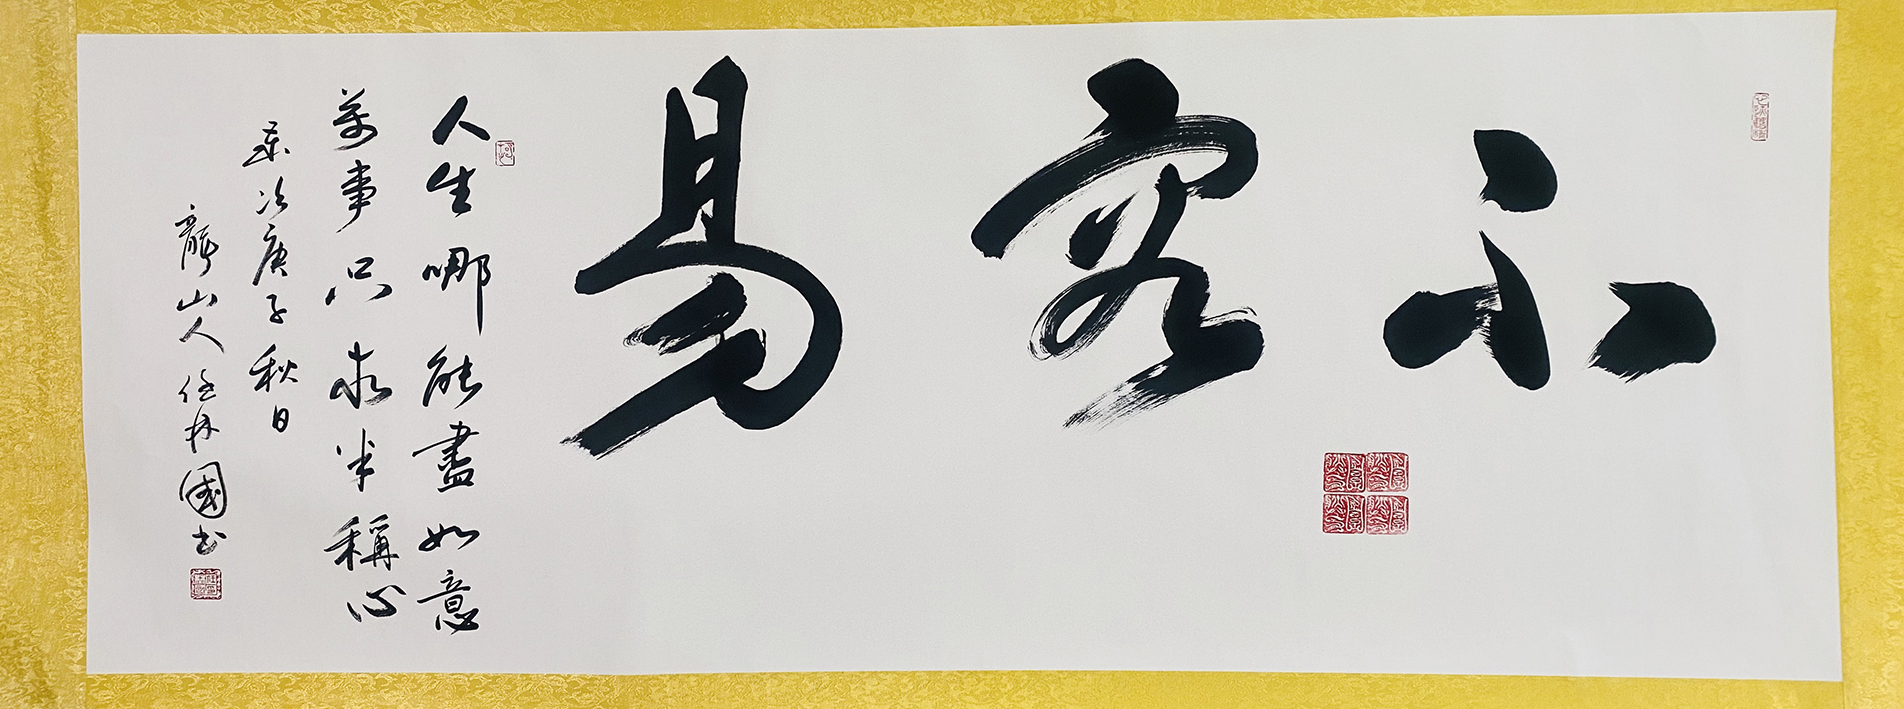 不容易
人生哪能盡如意
萬事只求半稱心
歲次庚子秋日
龍山人任林國书